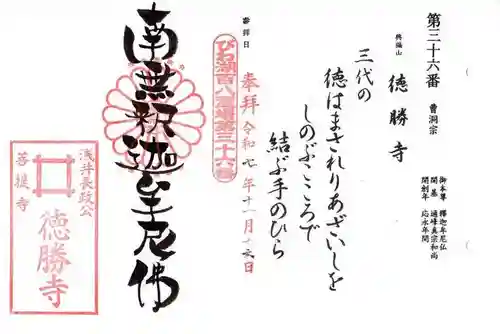 第三十六番 曹洞宗
御本尊 釋迦牟尼仏
開基 通峰真宗和尚
開創年 応永年間
興福山
徳勝寺
三代の
徳はまされりあざいしを
しのぶこころで
結ぶ手のひら
参拝日
奉拝 令和七年十一月 日
びわ湖百八霊場第三十六番
南無釈迦牟尼佛
浅井長政公
菩提寺
徳勝寺